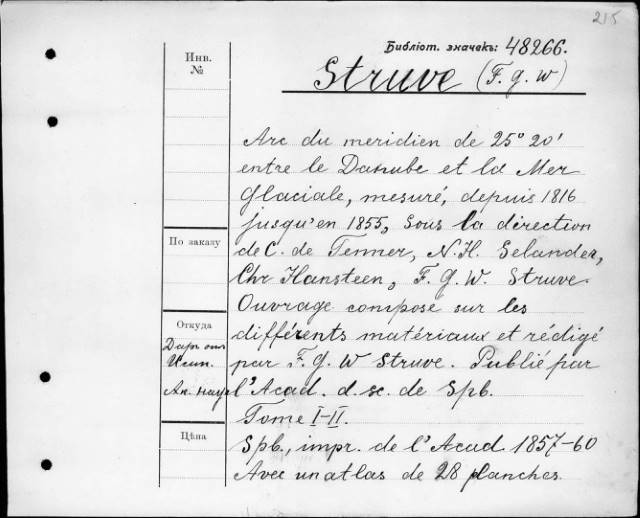 215
Библіот. значекъ: 48266.
Инв.
№
Struve (F. g. W)
Arc du meridien de 25° 20'
entre le Danube et la Mer
Glaciale, mesuré, depuis 1816
jusqu'en 1855, Sous la direction
По заказу
de C. de Tenner, N. H. Selander,
Chr Hansteen, F. g. W. Struve.
Ouvrage composé sur les
Откуда
différents matériaux et rédigé
Даръ отъ
par F. g. W Struve. Publié par
Ак. Наукъ
l'Acad. d. sc. de Spb.
Tome I-II.
Цѣна
Spb., impr. de l'Acad. 1857-60
Avec un atlas de 28 planches.